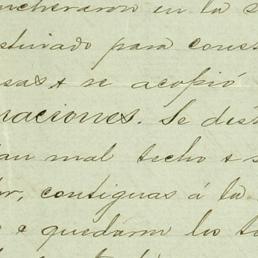 ncheraron en la s
stinado para const
sas & se acopió
raciones. Se dest
lan mal techo & s
or, contiguas á la
e quedarn los t